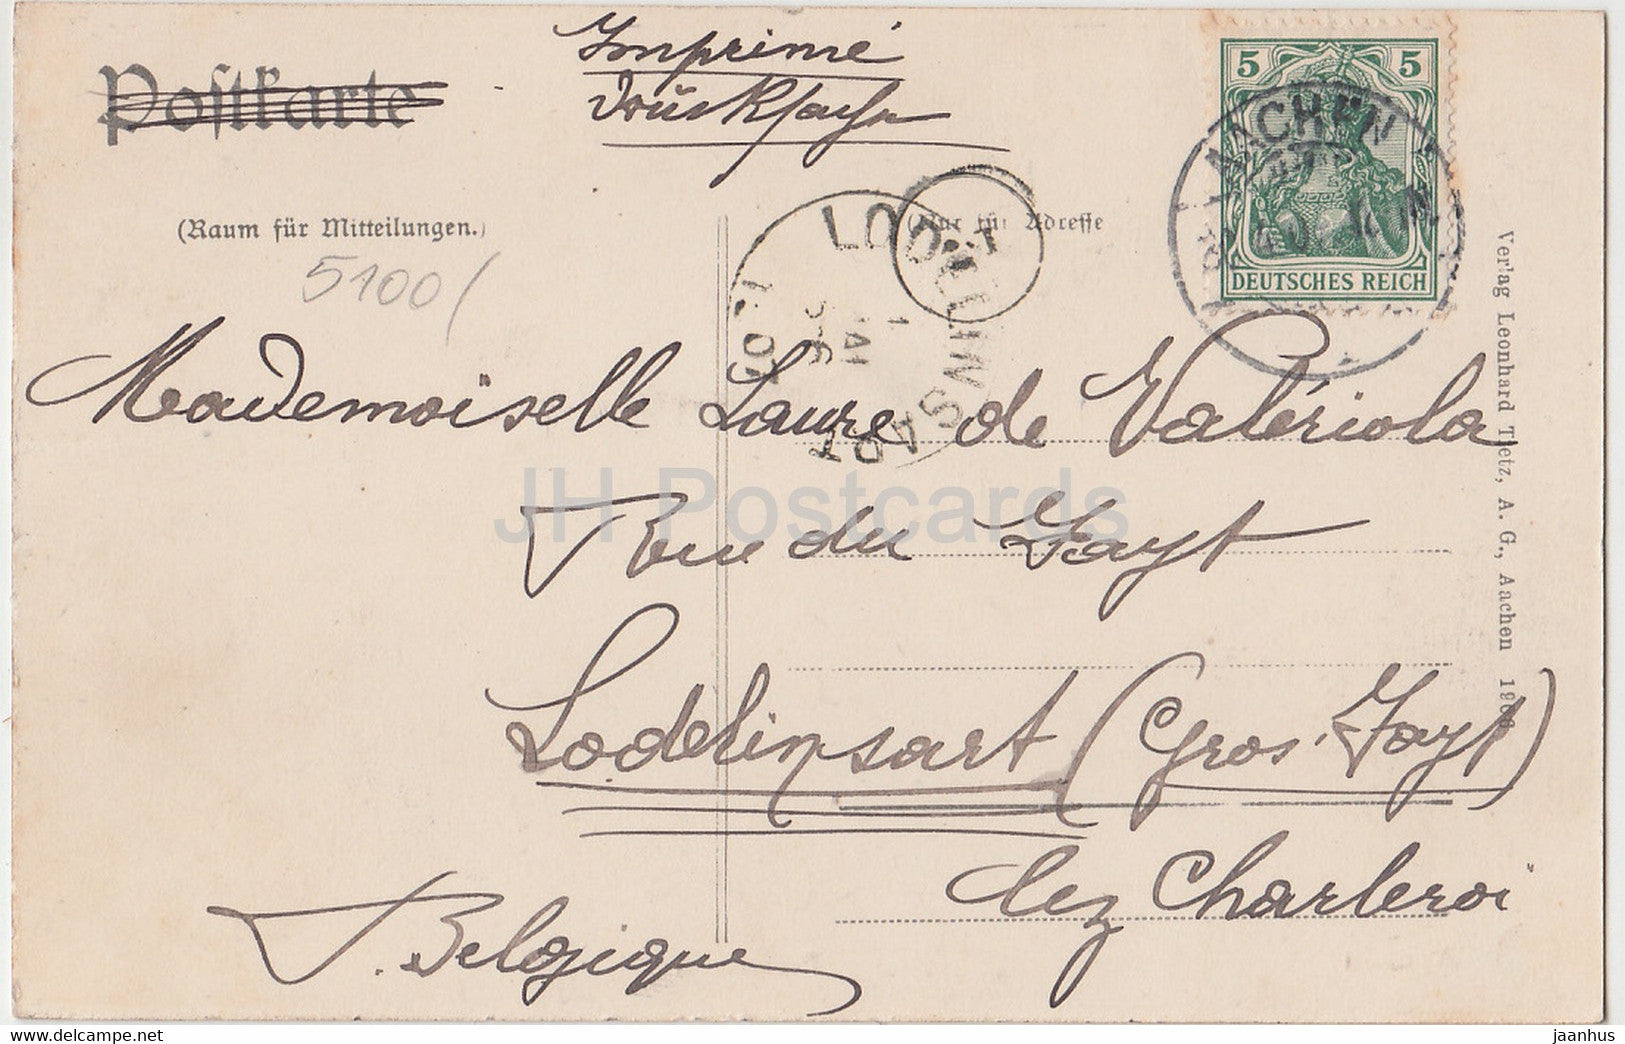 Imprimé
Drucksache
Postkarte
5 5
AACHEN
DEUTSCHES REICH
(Raum für Mitteilungen.)
(Nur für Adresse
LODELINSART
1907
5100
Mademoiselle Laure de Valériola
Rue du Fayt
Lodelinsart (Gros. Fayt)
lez Charleroi
Belgique
Verlag Leonhard Tietz, A. G., Aachen
JH Postcards
delcampe.net
jaanhus